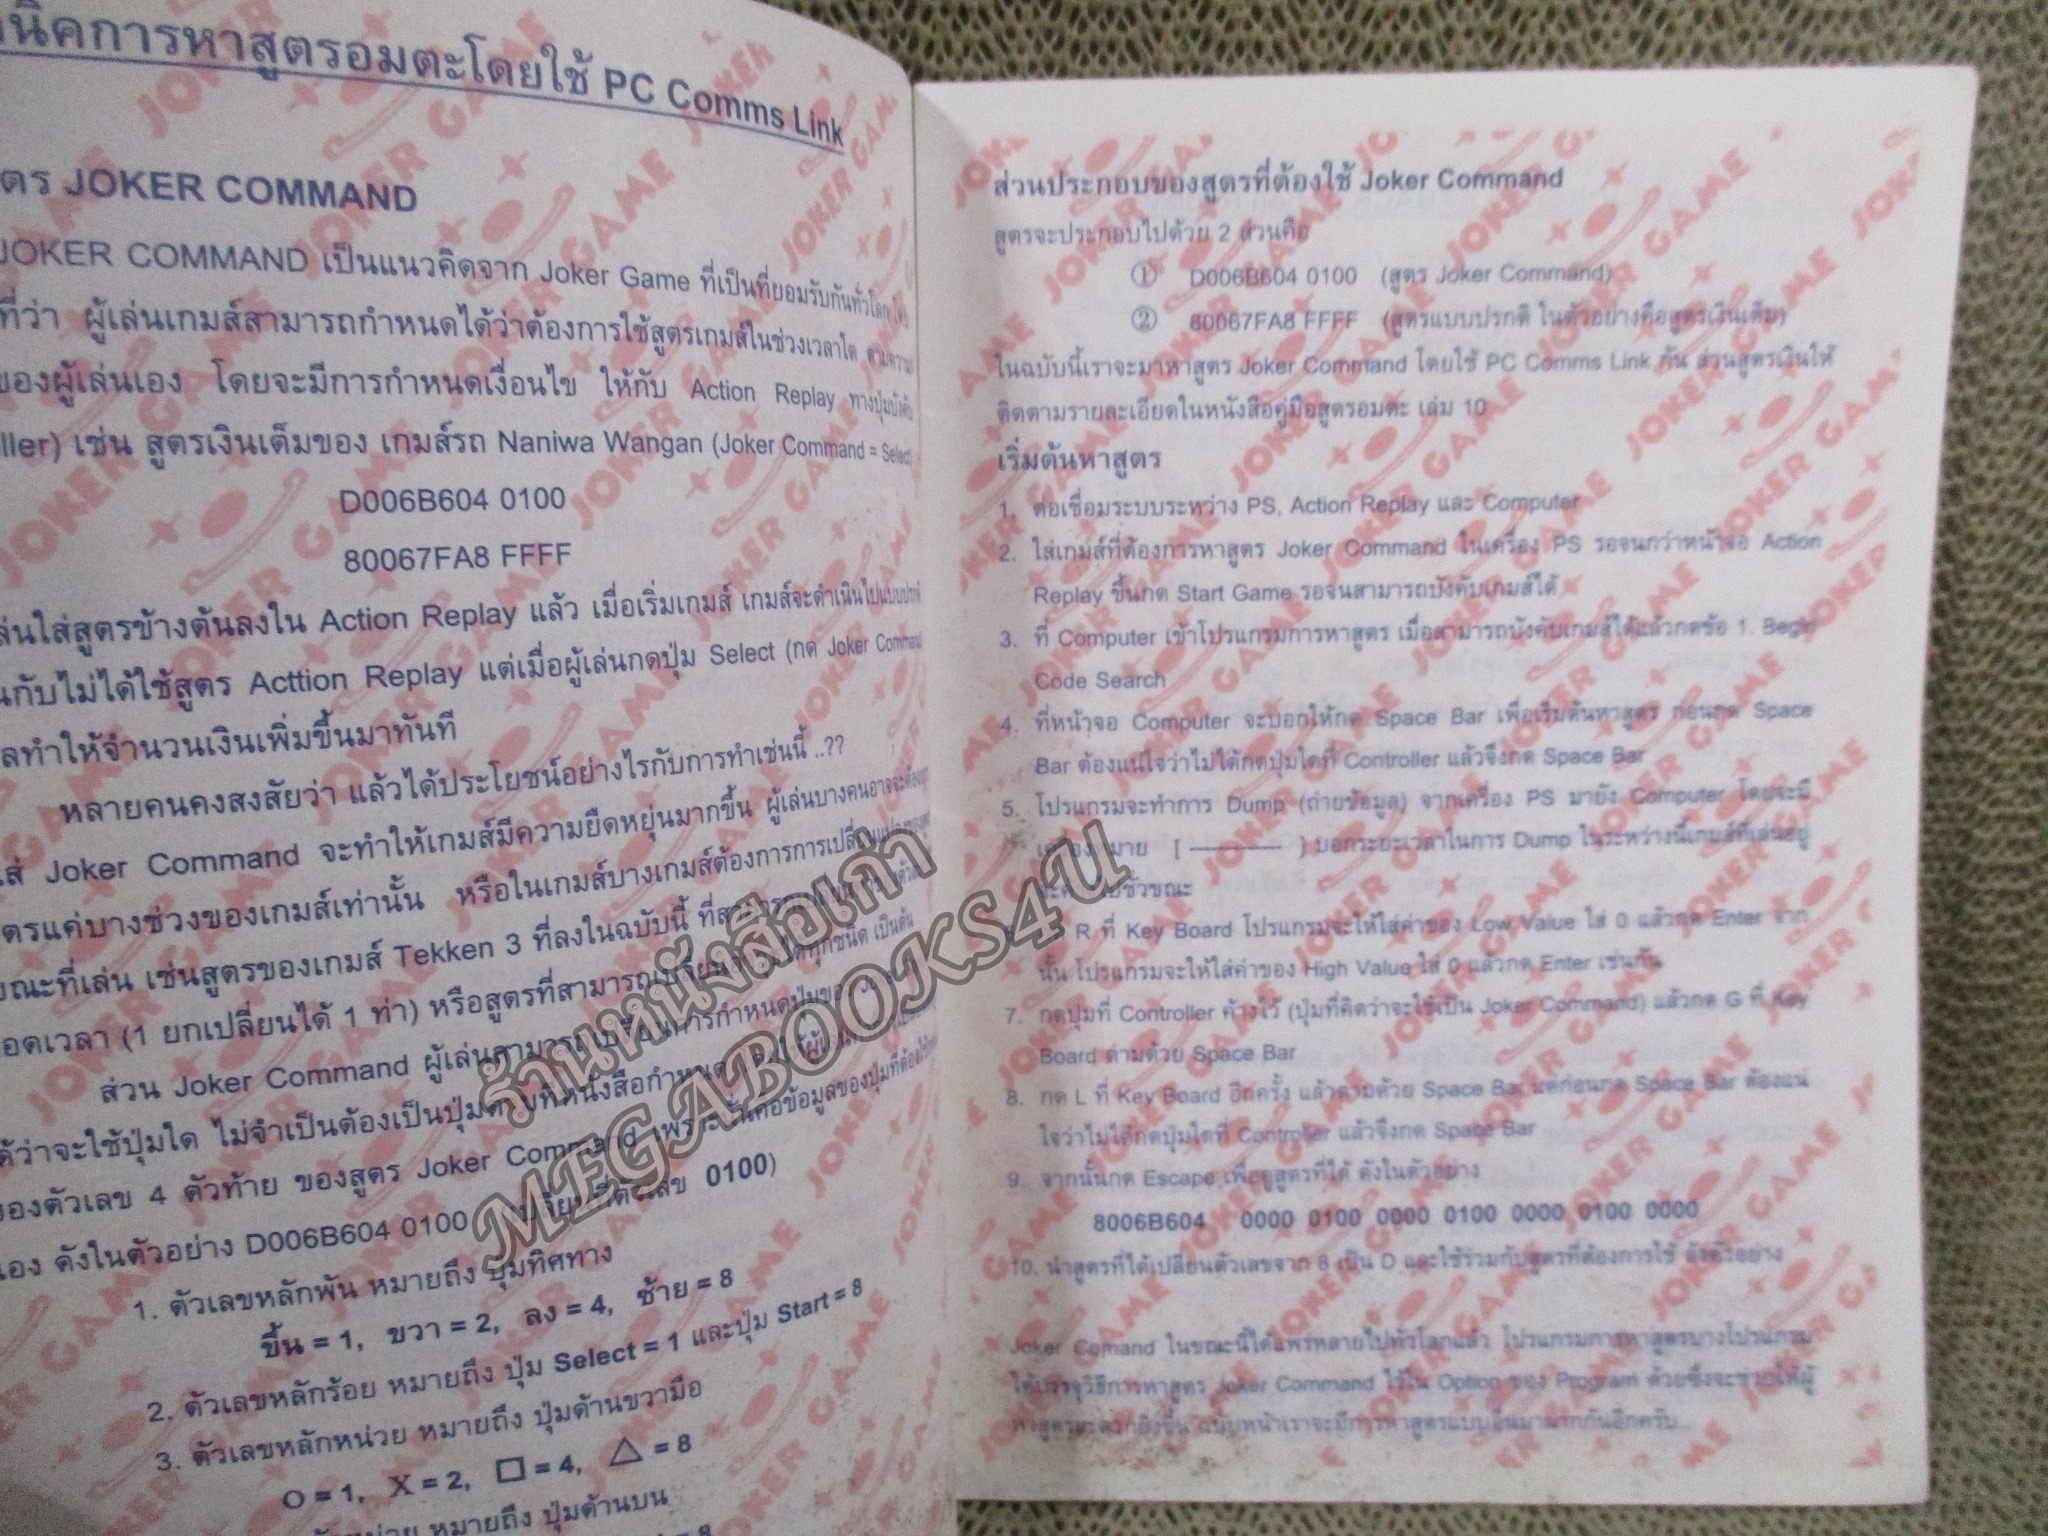 นิคการหาสูตรอมตะโดยใช้ PC Comms Link
ตร JOKER COMMAND
JOKER COMMAND เป็นแนวคิดจาก Joker Game ที่เป็นที่ยอมรับกันทั่วโลก
ที่ว่า ผู้เล่นเกมส์สามารถกำหนดได้ว่าต้องการใช้สูตรเกมส์ในช่วงเวลาใด ตามความ
ของผู้เล่นเอง โดยจะมีการกำหนดเงื่อนไข ให้กับ Action Replay ทางปุ่มบังคับ
ller) เช่น สูตรเงินเต็มของ เกมส์รถ Naniwa Wangan (Joker Command = Select)
D006B604 0100
80067FA8 FFFF
ล่นใส่สูตรข้างต้นลงใน Action Replay แล้ว เมื่อเริ่มเกมส์ เกมส์จะดำเนินไปแบบปรกติ
นกับไม่ได้ใช้สูตร Acttion Replay แต่เมื่อผู้เล่นกดปุ่ม Select (กด Joker Command
ลทำให้จำนวนเงินเพิ่มขึ้นมาทันที
หลายคนคงสงสัยว่า แล้วได้ประโยชน์อย่างไรกับการทำเช่นนี้ ..??
ส่ Joker Command จะทำให้เกมส์มีความยืดหยุ่นมากขึ้น ผู้เล่นบางคนอาจจะต้องการ
ตรแค่บางช่วงของเกมส์เท่านั้น หรือในเกมส์บางเกมส์ต้องการการเปลี่ยนแปลงของ
ขณะที่เล่น เช่นสูตรของเกมส์ Tekken 3 ที่ลงในฉบับนี้
อดเวลา (1 ยกเปลี่ยนได้ 1 ท่า) หรือสูตรที่สามารถ ได้ทุกชนิด เป็นต้น
ส่วน Joker Command ผู้เล่นสามารถเปลี่ยนการกำหนดปุ่มของ
ด้ว่าจะใช้ปุ่มใด ไม่จำเป็นต้องเป็นปุ่มตามที่หนังสือกำหนด
ของตัวเลข 4 ตัวท้าย ของสูตร Joker Command เพราะนั่นคือข้อมูลของปุ่มที่ต้องใช้
เอง ดังในตัวอย่าง D006B604 0100 ตัวเลข 0100)
1. ตัวเลขหลักพัน หมายถึง ปุ่มทิศทาง
ขึ้น = 1, ขวา = 2, ลง = 4, ซ้าย = 8
2. ตัวเลขหลักร้อย หมายถึง ปุ่ม Select = 1 และปุ่ม Start = 8
3. ตัวเลขหลักหน่วย หมายถึง ปุ่มด้านขวามือ
O = 1, X = 2, □ = 4, △ = 8
หมายถึง ปุ่มด้านบน
= 8
ส่วนประกอบของสูตรที่ต้องใช้ Joker Command
สูตรจะประกอบไปด้วย 2 ส่วนคือ
① D006B604 0100 (สูตร Joker Command)
② 80067FA8 FFFF (สูตรแบบปรกติ ในตัวอย่างคือสูตรเงินเต็ม)
ในฉบับนี้เราจะมาหาสูตร Joker Command โดยใช้ PC Comms Link กัน ส่วนสูตรเงินให้
ติดตามรายละเอียดในหนังสือคู่มือสูตรอมตะ เล่ม 10
เริ่มต้นหาสูตร
1. ต่อเชื่อมระบบระหว่าง PS, Action Replay และ Computer
2. ใส่เกมส์ที่ต้องการหาสูตร Joker Command ในเครื่อง PS รอจนกว่าหน้าจอ Action
Replay ขึ้นกด Start Game รอจนสามารถบังคับเกมส์ได้
3. ที่ Computer เข้าโปรแกรมการหาสูตร เมื่อสามารถบังคับเกมส์ได้แล้วกดข้อ 1. Begin
Code Search
4. ที่หน้าจอ Computer จะบอกให้กด Space Bar เพื่อเริ่มต้นหาสูตร ก่อนกด Space
Bar ต้องแน่ใจว่าไม่ได้กดปุ่มใดที่ Controller แล้วจึงกด Space Bar
5. โปรแกรมจะทำการ Dump (ถ่ายข้อมูล) จากเครื่อง PS มายัง Computer โดยจะมี
เครื่องหมาย [ ------------ ] บอกระยะเวลาในการ Dump ในระหว่างนี้เกมส์ที่เล่นอยู่
ชั่วขณะ
R ที่ Key Board โปรแกรมจะให้ใส่ค่าของ Low Value ใส่ 0 แล้วกด Enter จาก
นั้น โปรแกรมจะให้ใส่ค่าของ High Value ใส่ 0 แล้วกด Enter เช่นกัน
7. กดปุ่มที่ Controller ค้างไว้ (ปุ่มที่คิดว่าจะใช้เป็น Joker Command) แล้วกด G ที่ Key
Board ตามด้วย Space Bar
8. กด L ที่ Key Board อีกครั้ง แล้วตามด้วย Space Bar แต่ก่อนกด Space Bar ต้องแน่
ใจว่าไม่ได้กดปุ่มใดที่ Controller แล้วจึงกด Space Bar
9. จากนั้นกด Escape เพื่อดูสูตรที่ได้ ดังในตัวอย่าง
8006B604 0000 0100 0000 0100 0000 0100 0000
10. นำสูตรที่ได้เปลี่ยนตัวเลขจาก 8 เป็น D และใช้ร่วมกับสูตรที่ต้องการใช้ ดังตัวอย่าง
Joker Comand ในขณะนี้ได้แพร่หลายไปทั่วโลกแล้ว โปรแกรมการหาสูตรบางโปรแกรม
ได้บรรจุวิธีการหาสูตร Joker Command ไว้ใน Option ของ Program ด้วยซึ่งจะช่วยให้ผู้
หาสูตรสะดวกยิ่งขึ้น ฉบับหน้าเราจะมีการหาสูตรแบบอื่นมาฝากกันอีกครับ
ร้านหนังสือเก่า
MEGABOOKS4U